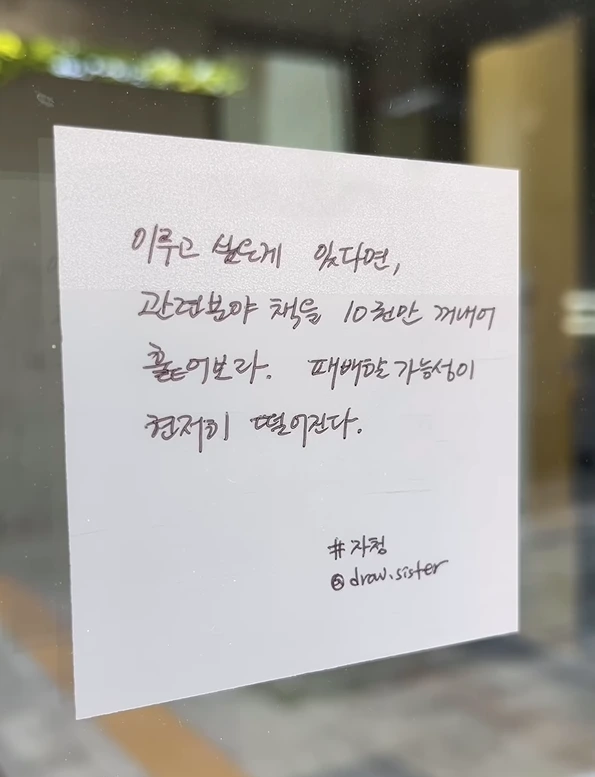 이루고 싶은게 있다면,
관련분야 책을 10권만 꺼내어
훑어보라. 패배할 가능성이
현저히 떨어진다.
#자청
@draw.sister